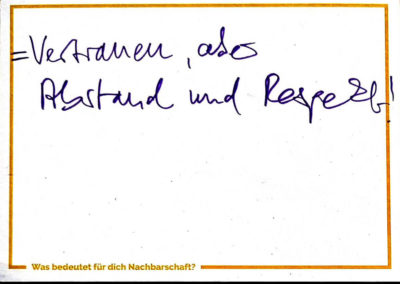 =Vertrauen, aber
Abstand und Respekt!
Was bedeutet für dich Nachbarschaft?